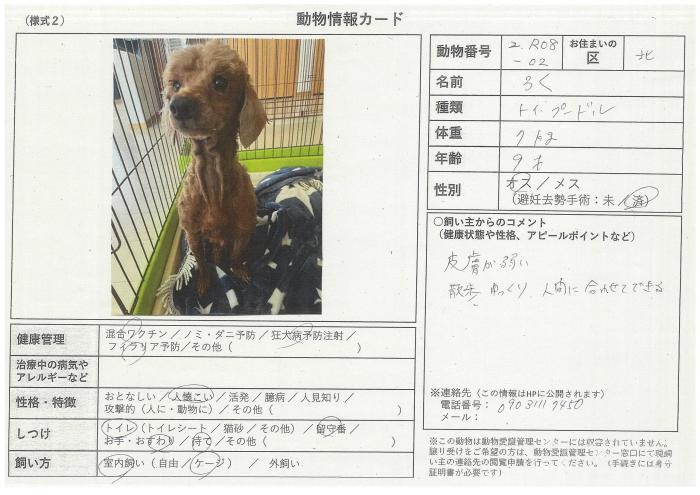 （様式２）
動物情報カード
動物番号
2. R08
-02
お住まいの
区
北
名前
ろく
種類
トイ・プードル
体重
7 kg
年齢
9才
性別
オス／メス
（避妊去勢手術：未／済）
○飼い主からのコメント
（健康状態や性格、アピールポイントなど）
皮膚が弱い
散歩 ゆっくり、人間に合わせてできる
※連絡先（この情報はHPに公開されます）
電話番号： 090 3111 7450
メール：
※この動物は動物愛護管理センターには収容されていません。
譲り受けをご希望の方は、動物愛護管理センター窓口にて現飼
い主の連絡先の閲覧申請を行ってください。（手続きには身分
証明書が必要です）
健康管理
混合ワクチン／ノミ・ダニ予防／狂犬病予防注射／
フィラリア予防／その他（　）
治療中の病気や
アレルギーなど
性格・特徴
おとなしい／人懐こい／活発／臆病／人見知り／
攻撃的（人に・動物に）／その他（　）
しつけ
トイレ（トイレシート／猫砂／その他）／留守番／
お手・おすわり／待て／その他（　）
飼い方
室内飼い（自由／ケージ）　／　外飼い